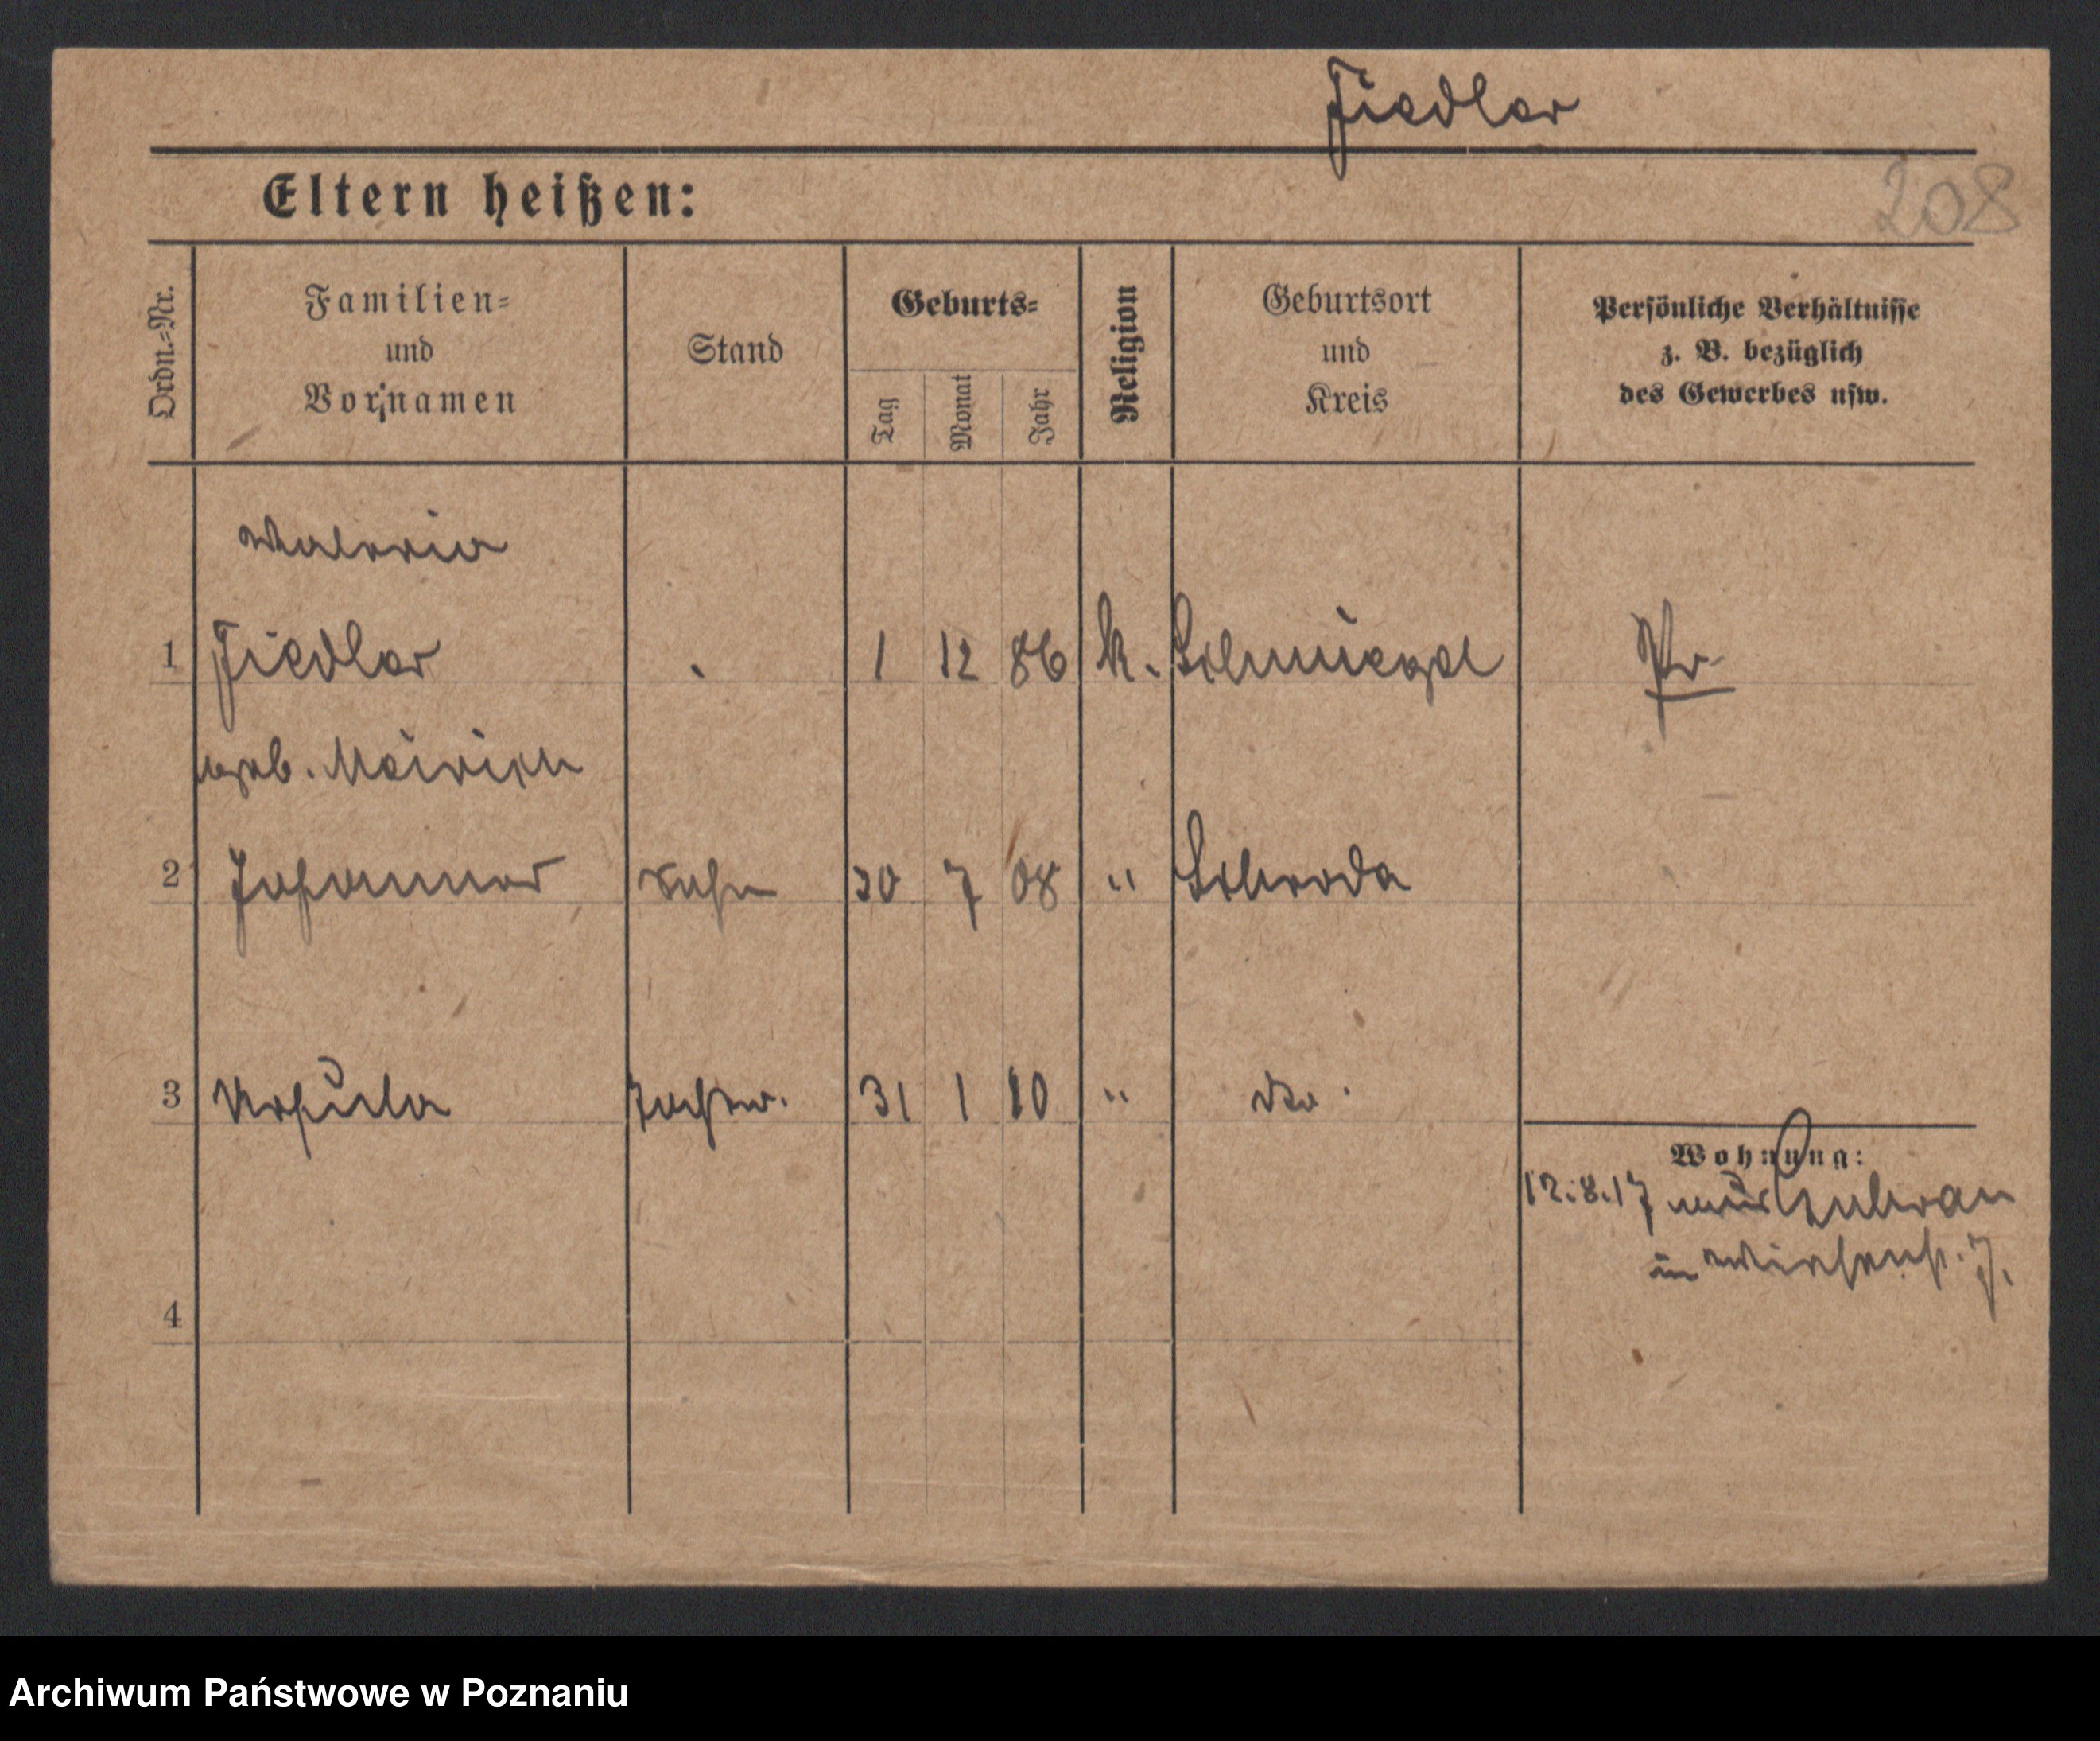 Fiedler
Eltern heißen:
208
Ordn.-Nr.
Familien-
und
Vornamen
Stand
Geburts-
Tag
Monat
Jahr
Religion
Geburtsort
und
Kreis
Persönliche Verhältnisse
z. B. bezüglich
des Gewerbes usw.
Waleria
1 Fiedler 1 12 86 k. Schmiegel Pr.
geb.
2 Sohn 30 7 08 " Schroda
3 Ursula Tochter. 31 1 10 " dto.
Wohnung:
12.8.17
in
4
Archiwum Państwowe w Poznaniu